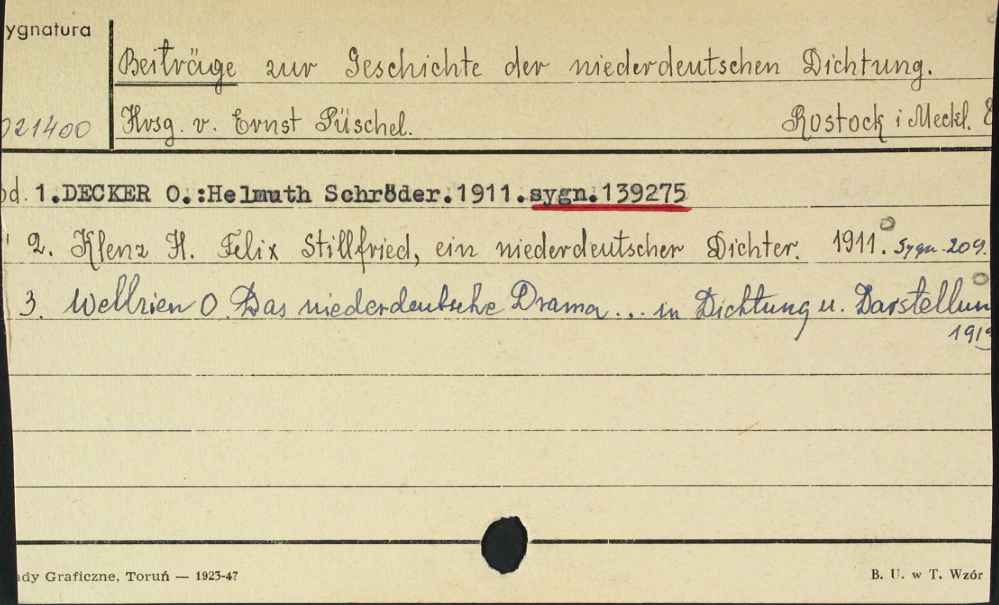 ygnatura
Beiträge zur Geschichte der niederdeutschen Dichtung.
021400 Hrsg. v. Ernst Püschel. Rostock i Meckl.
od. 1.DECKER O.:Helmuth Schröder.1911.sygn.139275
" 2. Klenz H. Felix Stillfried, ein niederdeutscher Dichter. 1911. Sygn. 209.
3. Wellrien O. Das niederdeutsche Drama... in Dichtung u. Darstellun
191
dy Graficzne, Toruń — 1923-47 B. U. w T. Wzór